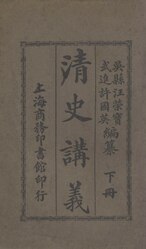 吳縣汪榮寶
武進許國英編纂
下冊
清史講義
上海商務印書館印行